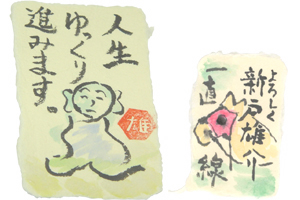 人生
ゆっくり
進みます。
雄
よろしく
新戸雄介
一直線